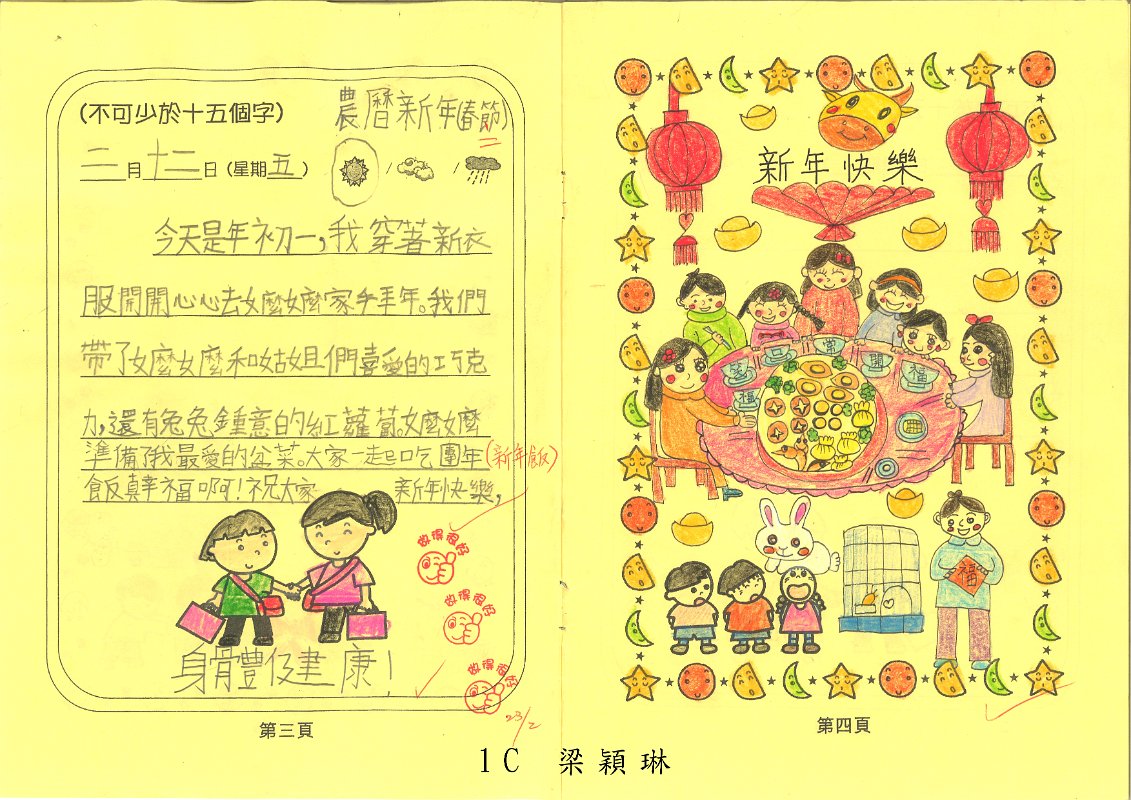 (不可少於十五個字)
農曆新年(春節)
二月十二日(星期五)
/ /
今天是年初一,我穿著新衣
服開開心心去嫲嫲家拜年。我們
帶了嫲嫲和姑姐們喜愛的巧克
力,還有兔兔鍾意的紅蘿蔔。嫲嫲
準備了我最愛的盆菜。大家一起吃團年(新年飯)
飯真幸福啊!祝大家 新年快樂,
做得很好
做得很好
做得很好
身體健康!
23/2
第三頁
新年快樂
常
開
笑
口
福
福
福
第四頁
1C 梁穎琳